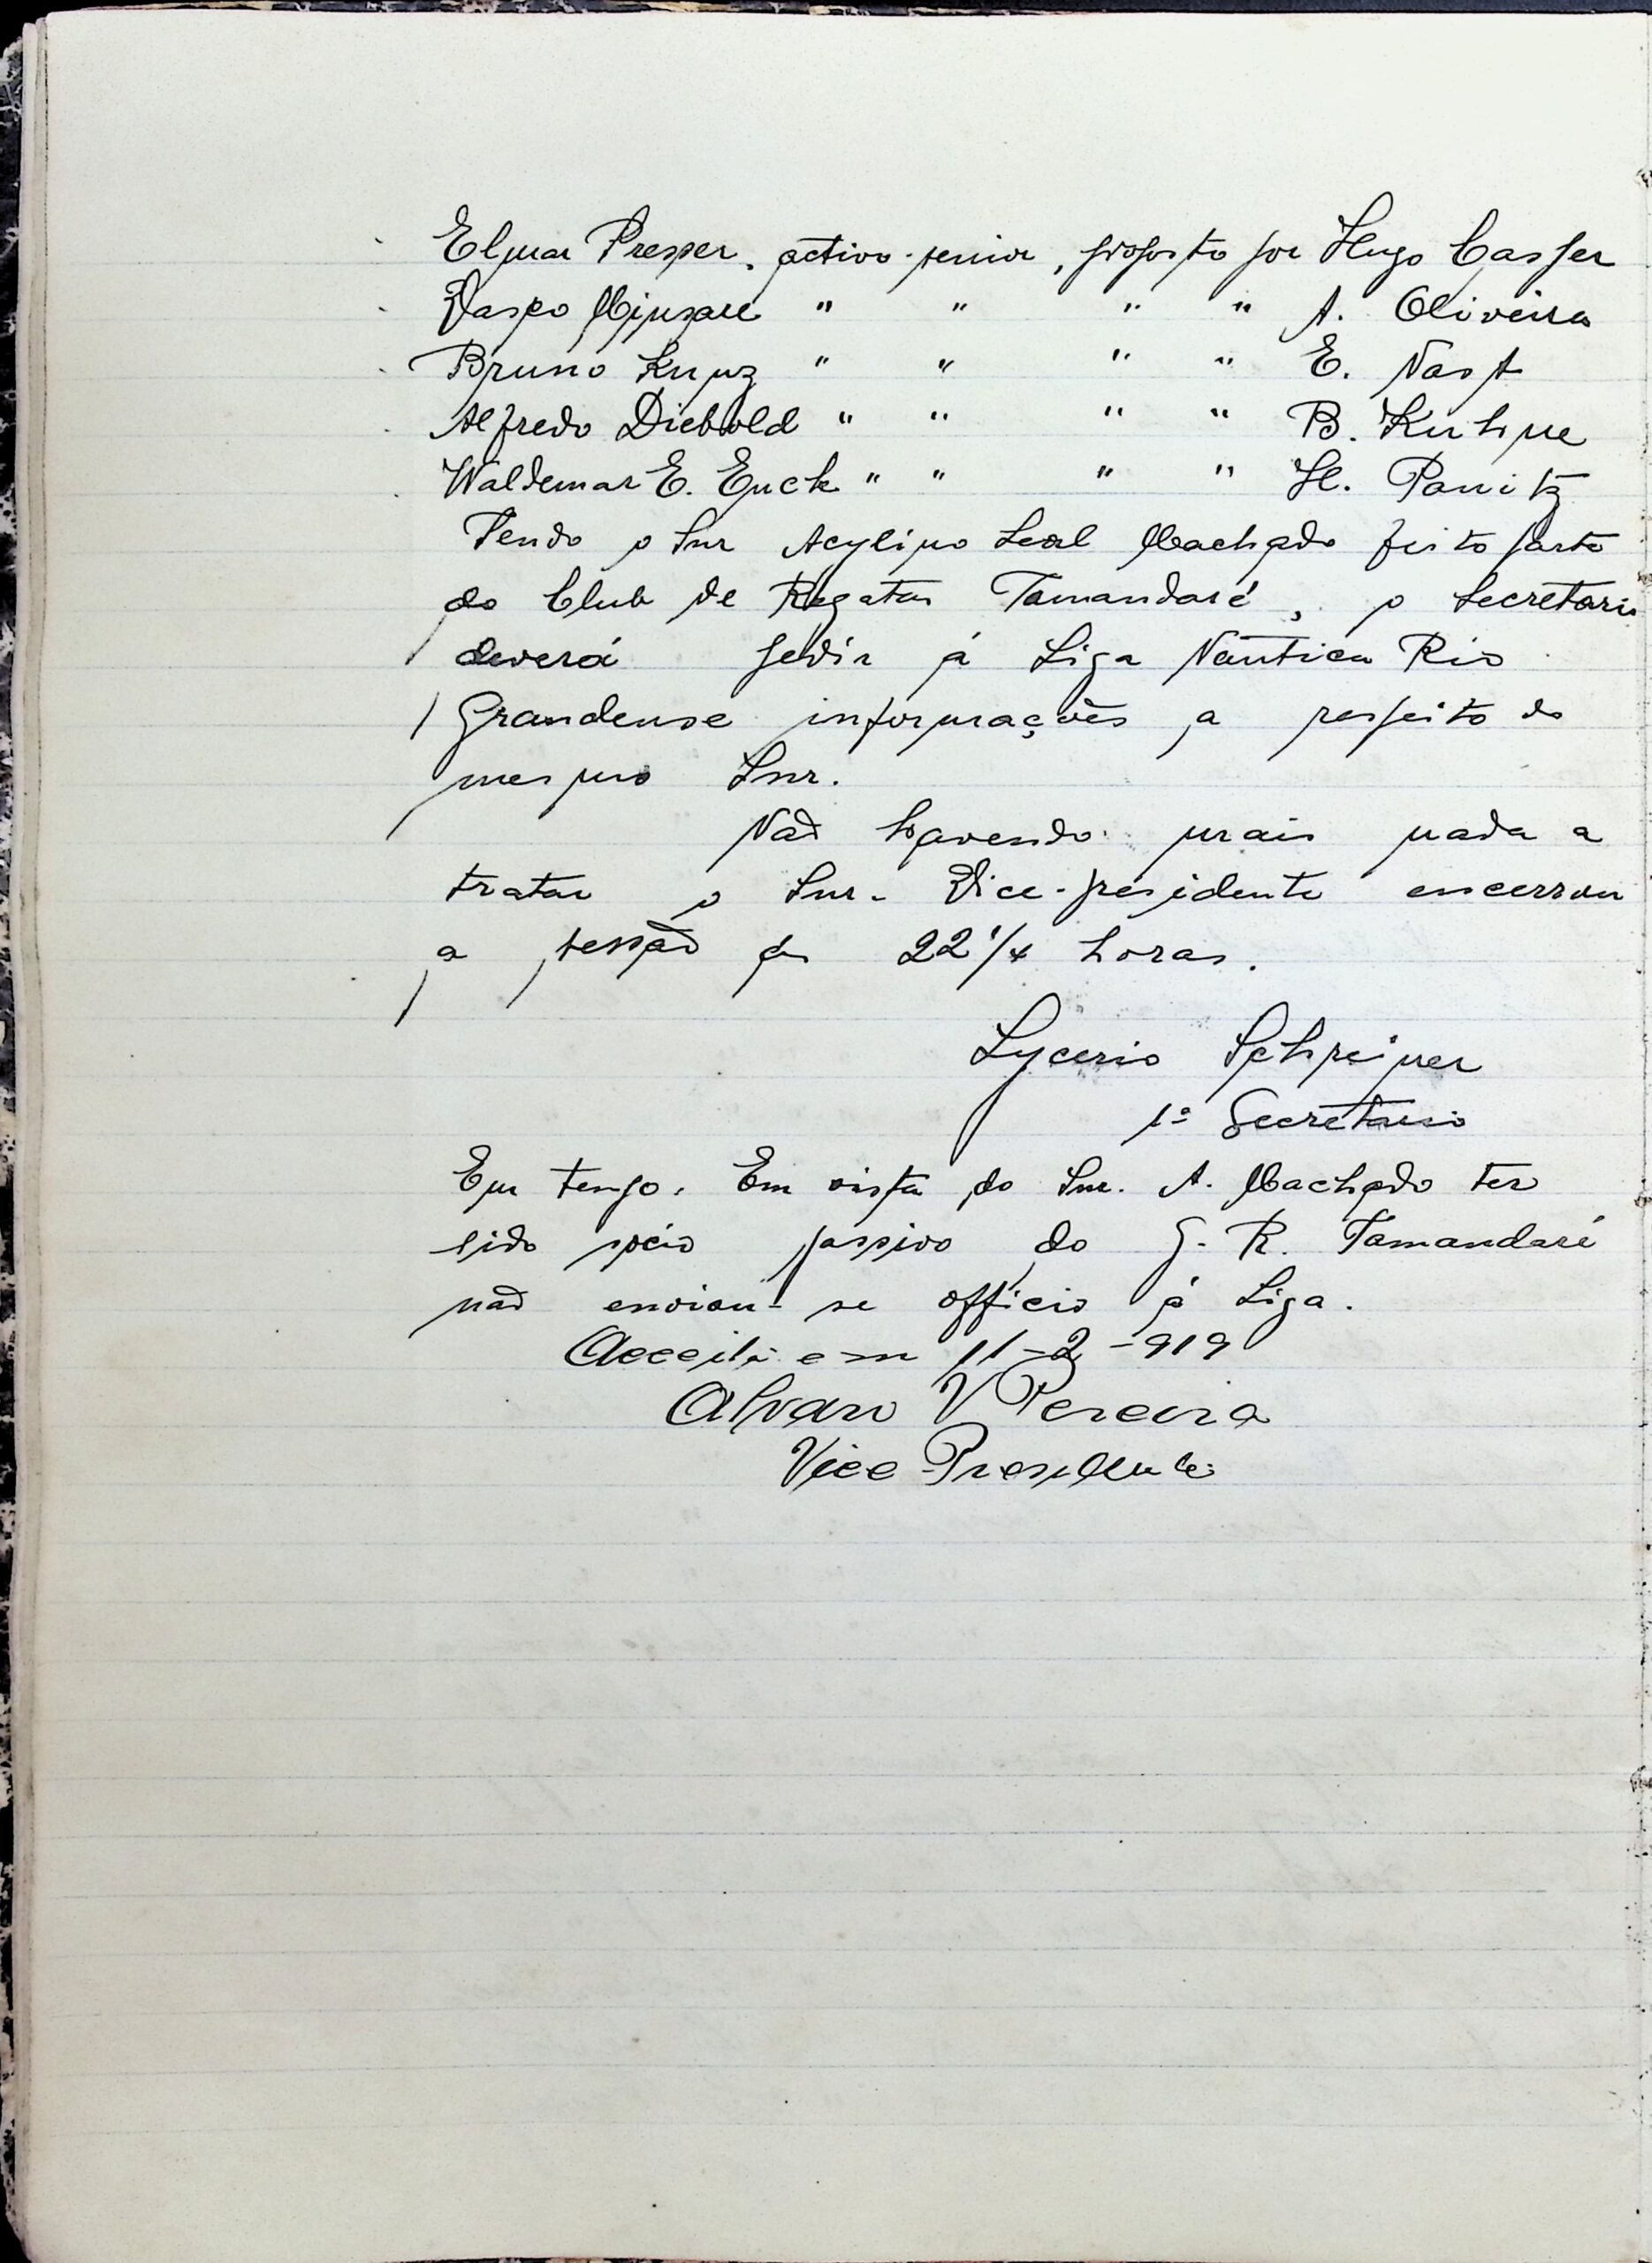 Elmar Presser, activo-senior, proposto por Hugo Casper
Vasco " " " " A. Oliveira
Bruno Kunz " " " " E. Nast
Alfredo Diebold " " " " B. Kuhne
Waldemar E. Enck " " " " H. Panitz
Tendo o Snr Acylino Leal Machado feito parte
do Club de Regatas Tamandaré, o Secretario
deverá pedir á Liga Nautica Rio
Grandense informações a respeito do
mesmo Snr.
Não havendo mais nada a
tratar o Snr. Vice-presidente encerrou
a sessão ás 22 1/4 horas.
Lycerio Schreiner
1º Secretario
Em tempo. Em vista do Snr. A. Machado ter
sido socio passivo do G. R. Tamandaré
não enviou-se officio á Liga.
Acceita em 11-2-919
Alvaro V Pereira
Vice-Presidente